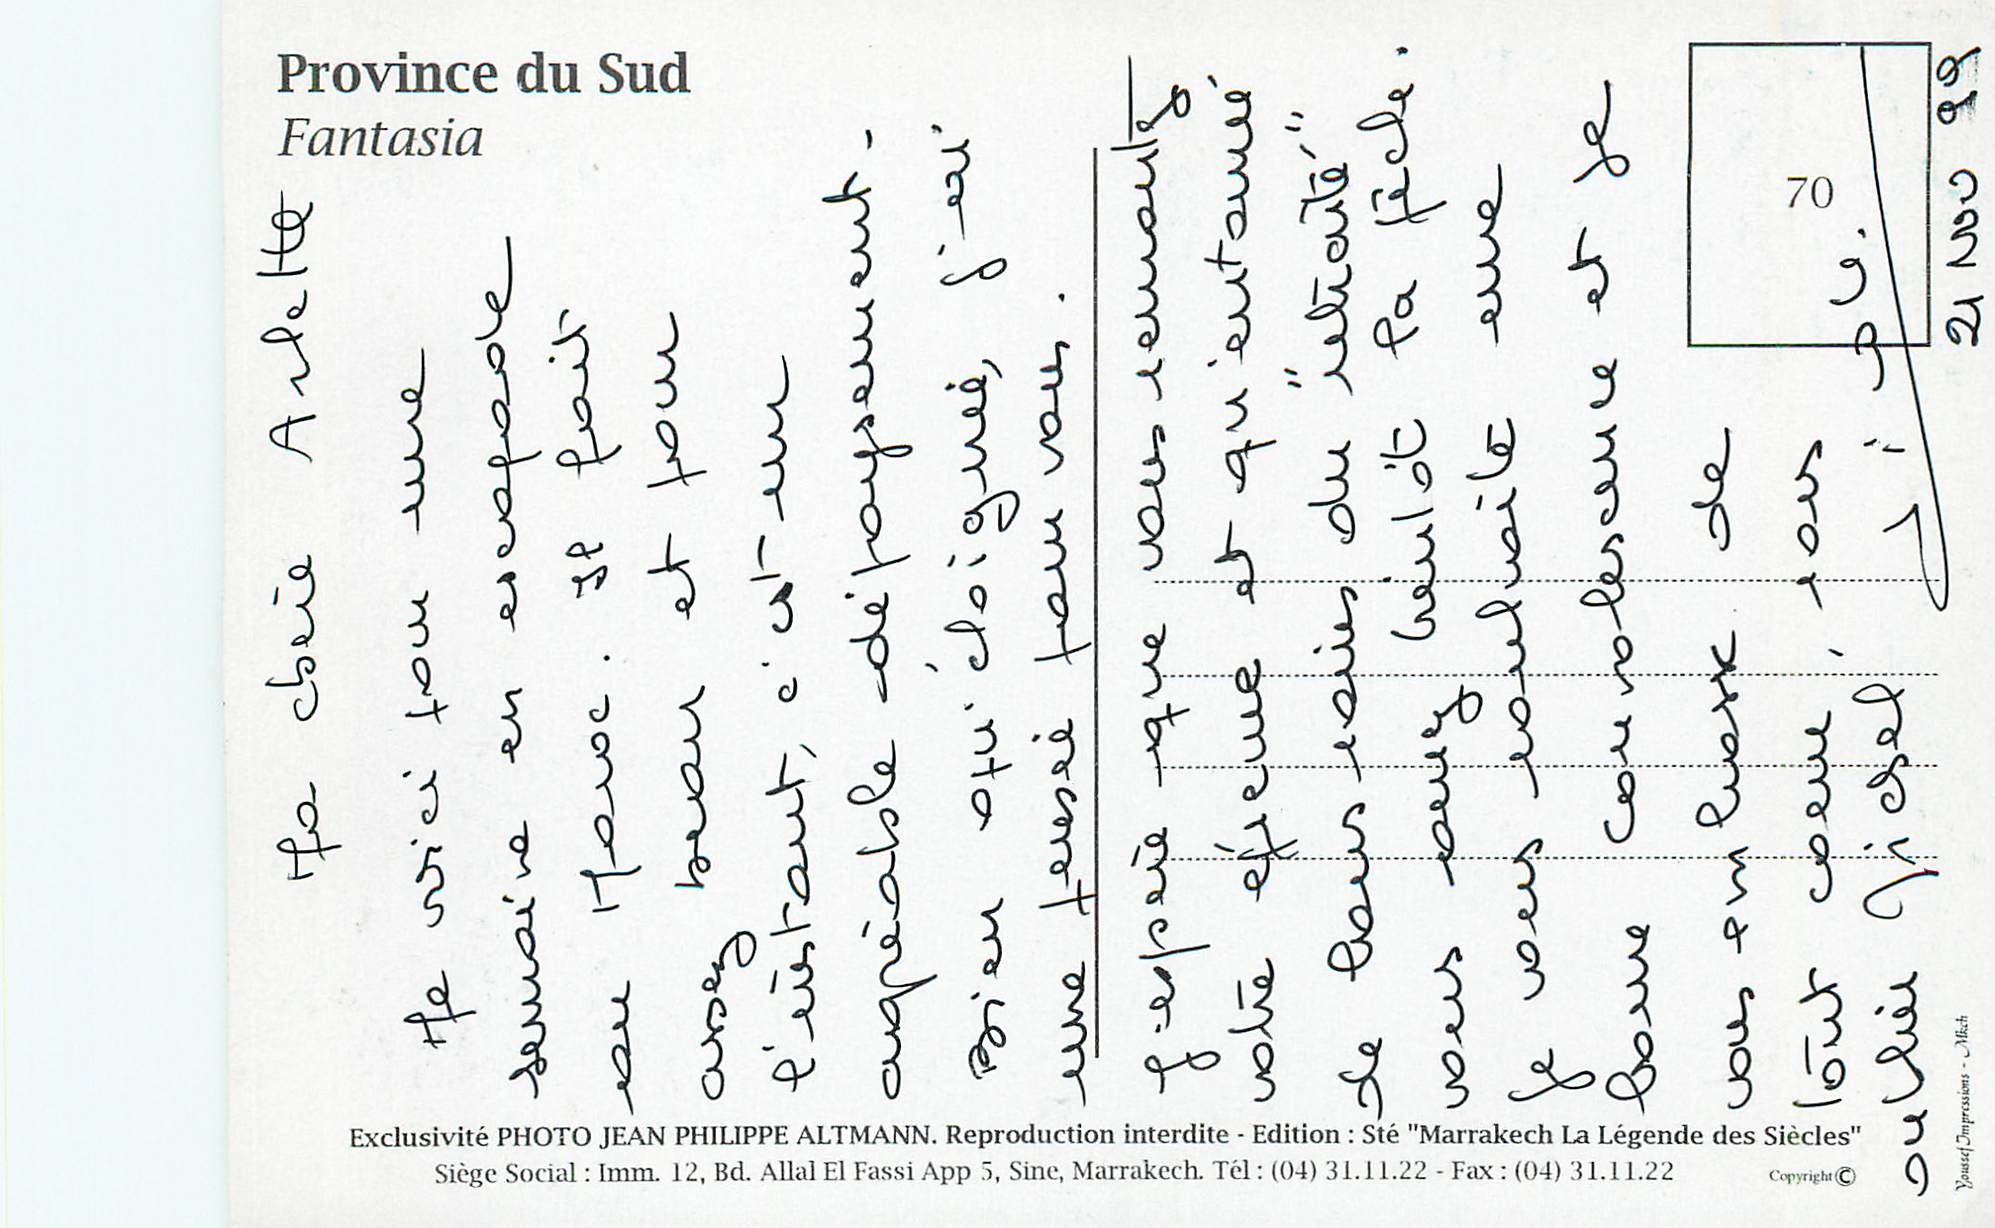 Province du Sud
Fantasia
Ma chère Arlette
Me voici pour une
semaine en escapade
au Maroc. Il fait
assez beau et pour
l'instant, c'est un
agréable dépaysement -
Bien qu'éloignée, j'ai
une pensée pour vous.
J'espère que vous remontez
votre épreuve et qu'entourée
de bons soins du "retraité"
vous serez bientôt la pêche.
Je vous souhaite une
bonne convalescence et je
vous embrasse de
tout coeur, sans
oublier Michel
70
21 Nov 99
Exclusivité PHOTO JEAN PHILIPPE ALTMANN. Reproduction interdite - Edition : Sté "Marrakech La Légende des Siècles"
Siège Social : Imm. 12, Bd. Allal El Fassi App 5, Sine, Marrakech. Tél : (04) 31.11.22 - Fax : (04) 31.11.22
Copyright ©
Youssef Impressions - Mkch